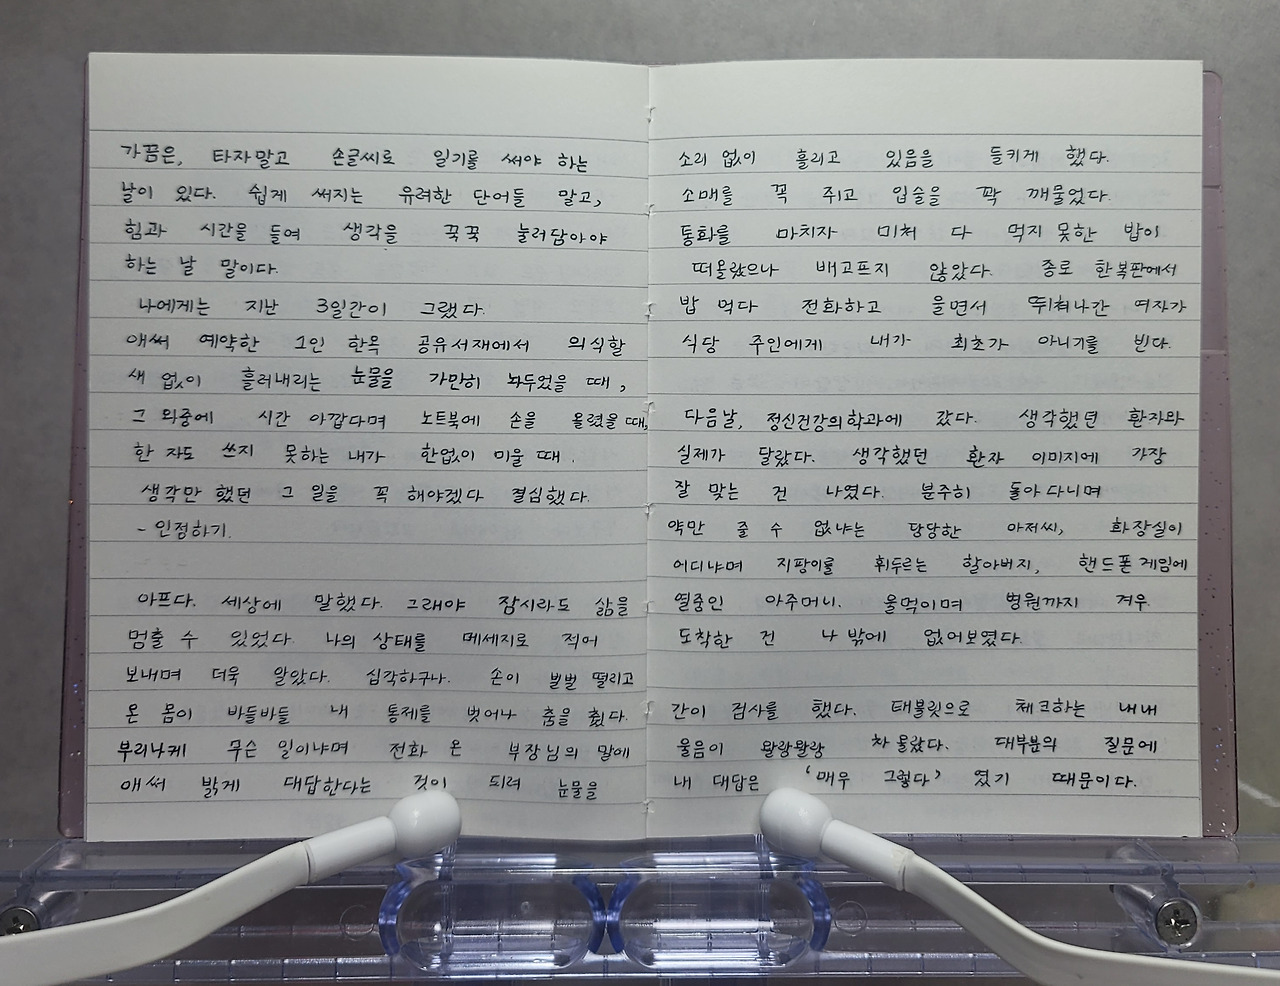 가끔은, 타자말고 손글씨로 일기를 써야 하는
날이 있다. 쉽게 써지는 유려한 단어들 말고,
힘과 시간을 들여 생각을 꾹꾹 눌러담아야
하는 날 말이다.
나에게는 지난 3일간이 그랬다.
애써 예약한 1인 한옥 공유서재에서 의식할
새 없이 흘러내리는 눈물을 가만히 놔두었을 때,
그 와중에 시간 아깝다며 노트북에 손을 올렸을 때,
한 자도 쓰지 못하는 내가 한없이 미울 때.
생각만 했던 그 일을 꼭 해야겠다 결심했다.
- 인정하기.
아프다. 세상에 말했다. 그래야 잠시라도 삶을
멈출 수 있었다. 나의 상태를 메세지로 적어
보내며 더욱 알았다. 심각하구나. 손이 벌벌 떨리고
온 몸이 바들바들 내 통제를 벗어나 춤을 췄다.
부리나케 무슨 일이냐며 전화 온 부장님의 말에
애써 밝게 대답한다는 것이 되려 눈물을
소리 없이 흘리고 있음을 들키게 했다.
소매를 꼭 쥐고 입술을 꽉 깨물었다.
통화를 마치자 미처 다 먹지 못한 밥이
떠올랐으나 배고프지 않았다. 종로 한복판에서
밥 먹다 전화하고 울면서 뛰쳐나간 여자가
식당 주인에게 내가 최초가 아니기를 빈다.
다음날, 정신건강의학과에 갔다. 생각했던 환자와
실제가 달랐다. 생각했던 환자 이미지에 가장
잘 맞는 건 나였다. 분주히 돌아다니며
약만 줄 수 없냐는 당당한 아저씨, 화장실이
어디냐며 지팡이를 휘두르는 할아버지, 핸드폰 게임에
열중인 아주머니. 울먹이며 병원까지 겨우
도착한 건 나 밖에 없어보였다.
간이 검사를 했다. 태블릿으로 체크하는 내내
울음이 왈랑왈랑 차 올랐다. 대부분의 질문에
내 대답은 '매우 그렇다' 였기 때문이다.